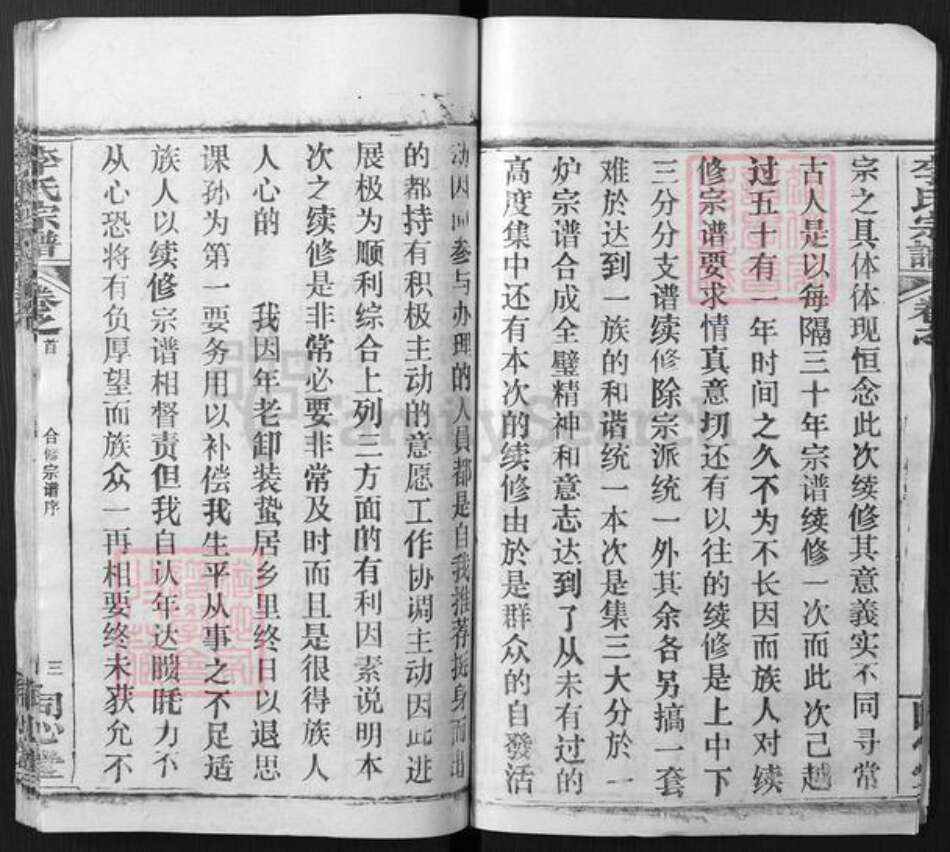 李氏宗譜
卷之
宗之具体体现恒念此次续修其意義实不同寻常
古人是以每隔三十年宗谱续修一次而此次己越
过五十有一年时间之久不为不长因而族人对续
修宗谱要求情真意切还有以往的续修是上中下
三分分支谱续修除宗派统一外其余各另搞一套
难於达到一族的和谐统一本次是集三大分於一
炉宗谱合成全璧精神和意志达到了从未有过的
高度集中还有本次的续修由於是群众的自發活
动因而参与办理的人員都是自我推荐挺身而出
的都持有积极主动的意愿工作协调主动因此进
展极为顺利综合上列三方面的有利因素说明本
次之续修是非常必要非常及时而且是很得族人
人心的 我因年老卸装蛰居乡里终日以退思
课孙为第一要务用以补偿我生平从事之不足适
族人以续修宗谱相督责但我自认年达聩眊力不
从心恐将有负厚望而族众一再相要终未获允不
李氏宗谱
卷之首
合修宗谱序
三
同心堂
FamilySearch